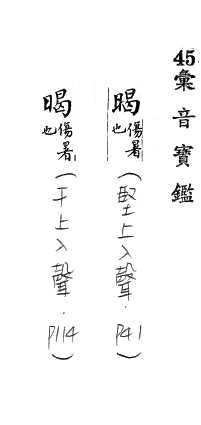 45彙音寶鑑
暍傷暑也(堅上入聲．P41)
暍傷暑也(干上入聲．P114)